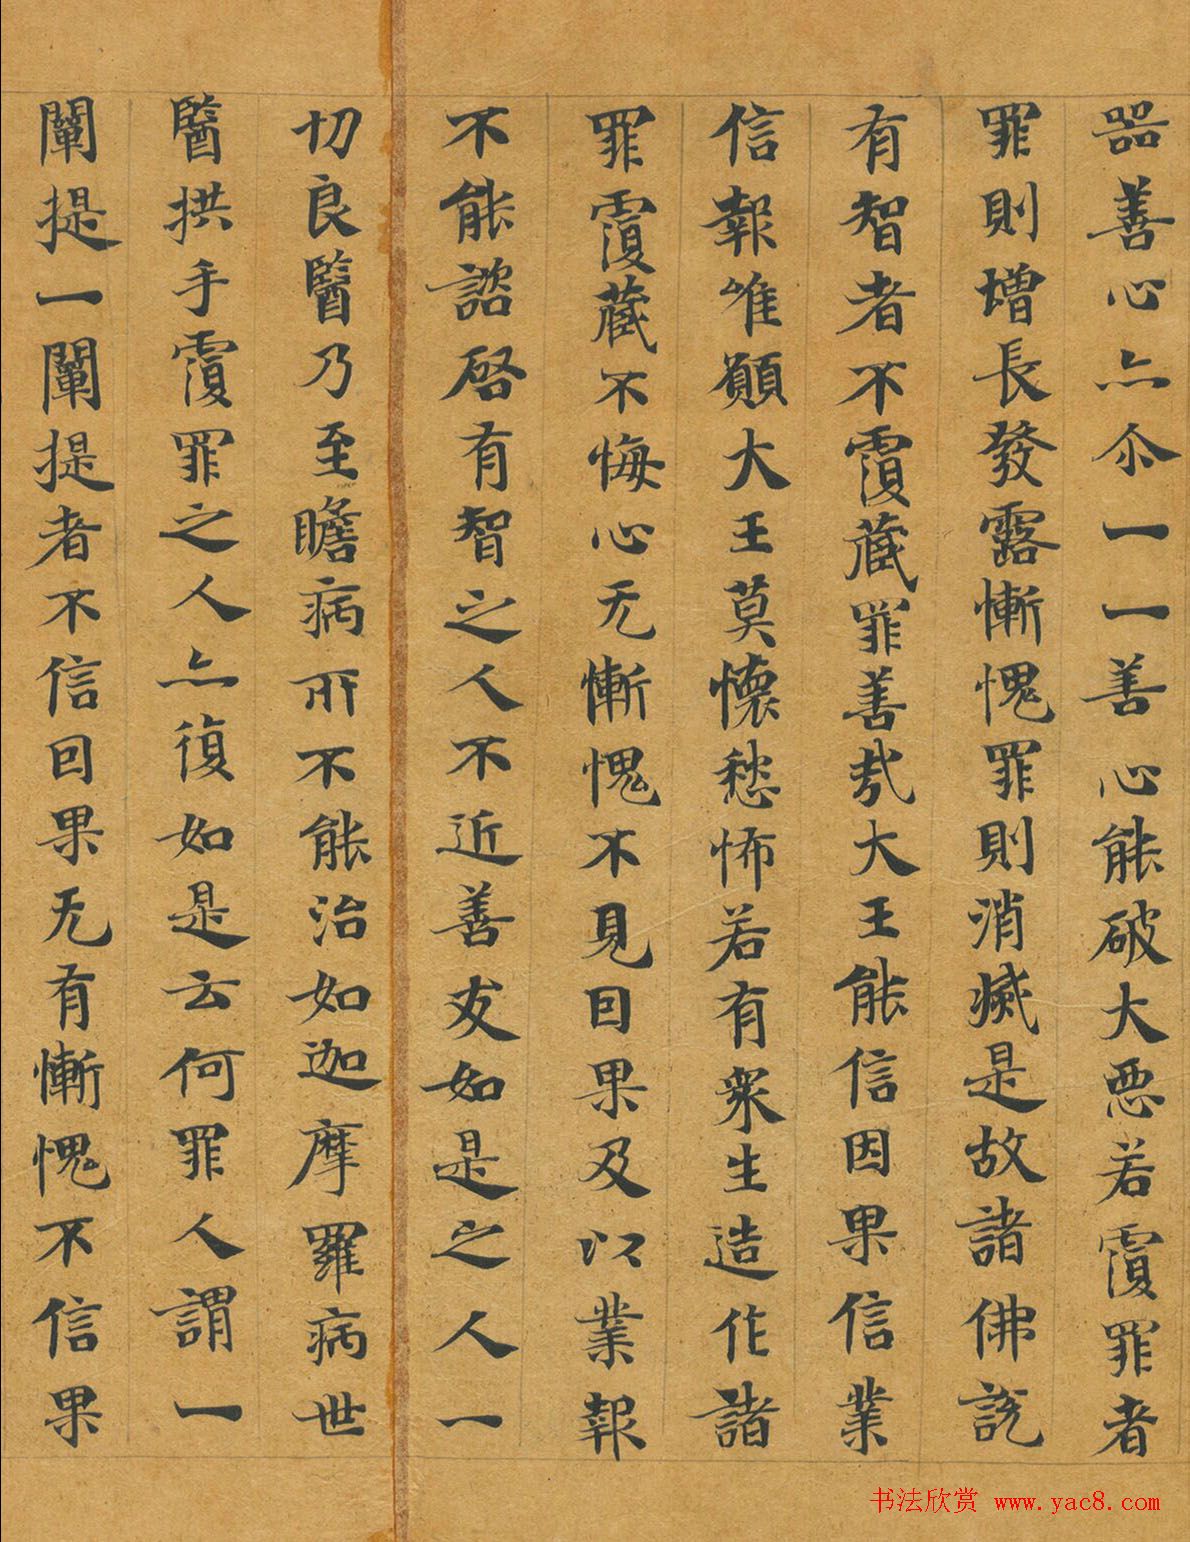 器善心亦尒一一善心能破大悪若覆罪者
罪則增長發露慚愧罪則消滅是故諸佛説
有智者不覆藏罪善㢤大王能信因果信業
信報唯願大王莫懷愁怖若有衆生造作諸
罪覆藏不悔心无慚愧不見囙果及以業報
不能諮啓有智之人不近善友如是之人一
切良醫乃至瞻病所不能治如迦摩羅病世
醫拱手覆罪之人亦復如是云何罪人謂一
闡提一闡提者不信囙果无有慚愧不信果
书法欣赏 www.yac8.com